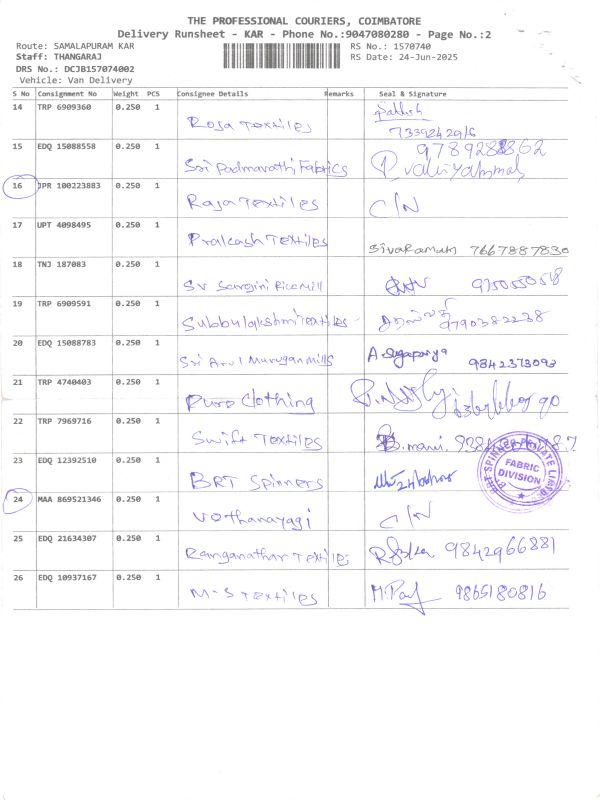 THE PROFESSIONAL COURIERS, COIMBATORE
Delivery Runsheet - KAR - Phone No.:9047080280 - Page No.:2
Route: SAMALAPURAM KAR RS No.: 1570740
Staff: THANGARAJ RS Date: 24-Jun-2025
DRS No.: DCJB157074002
Vehicle: Van Delivery
S No Consignment No Weight PCS Consignee Details Remarks Seal & Signature
14 TRP 6909360 0.250 1 Roja Textiles
7339242916
15 EDQ 15088558 0.250 1 Sri Padmavathi Fabrics
16 JPR 100223883 0.250 1 Raja Textiles C/N
17 UPT 4098495 0.250 1 Prakash Textiles Sivaraman 7667887830
18 TNJ 187083 0.250 1 Sv Sarojini Rice Mill
19 TRP 6909591 0.250 1 Subbulakshmi Textiles 9790382238
20 EDQ 15088783 0.250 1 Sri Arul Murugan Mills 9842373092
21 TRP 4740403 0.250 1 Pure Clothing
22 TRP 7969716 0.250 1 Swift Textiles B.mani
23 EDQ 12392510 0.250 1 BRT Spinners
SPINNER PRIVATE LIMITED
FABRIC
DIVISION
24 MAA 869521346 0.250 1 Vothanayagi C/N
25 EDQ 21634307 0.250 1 Ranganathar Textiles 9842966881
26 EDQ 10937167 0.250 1 M-S Textiles 9865180816